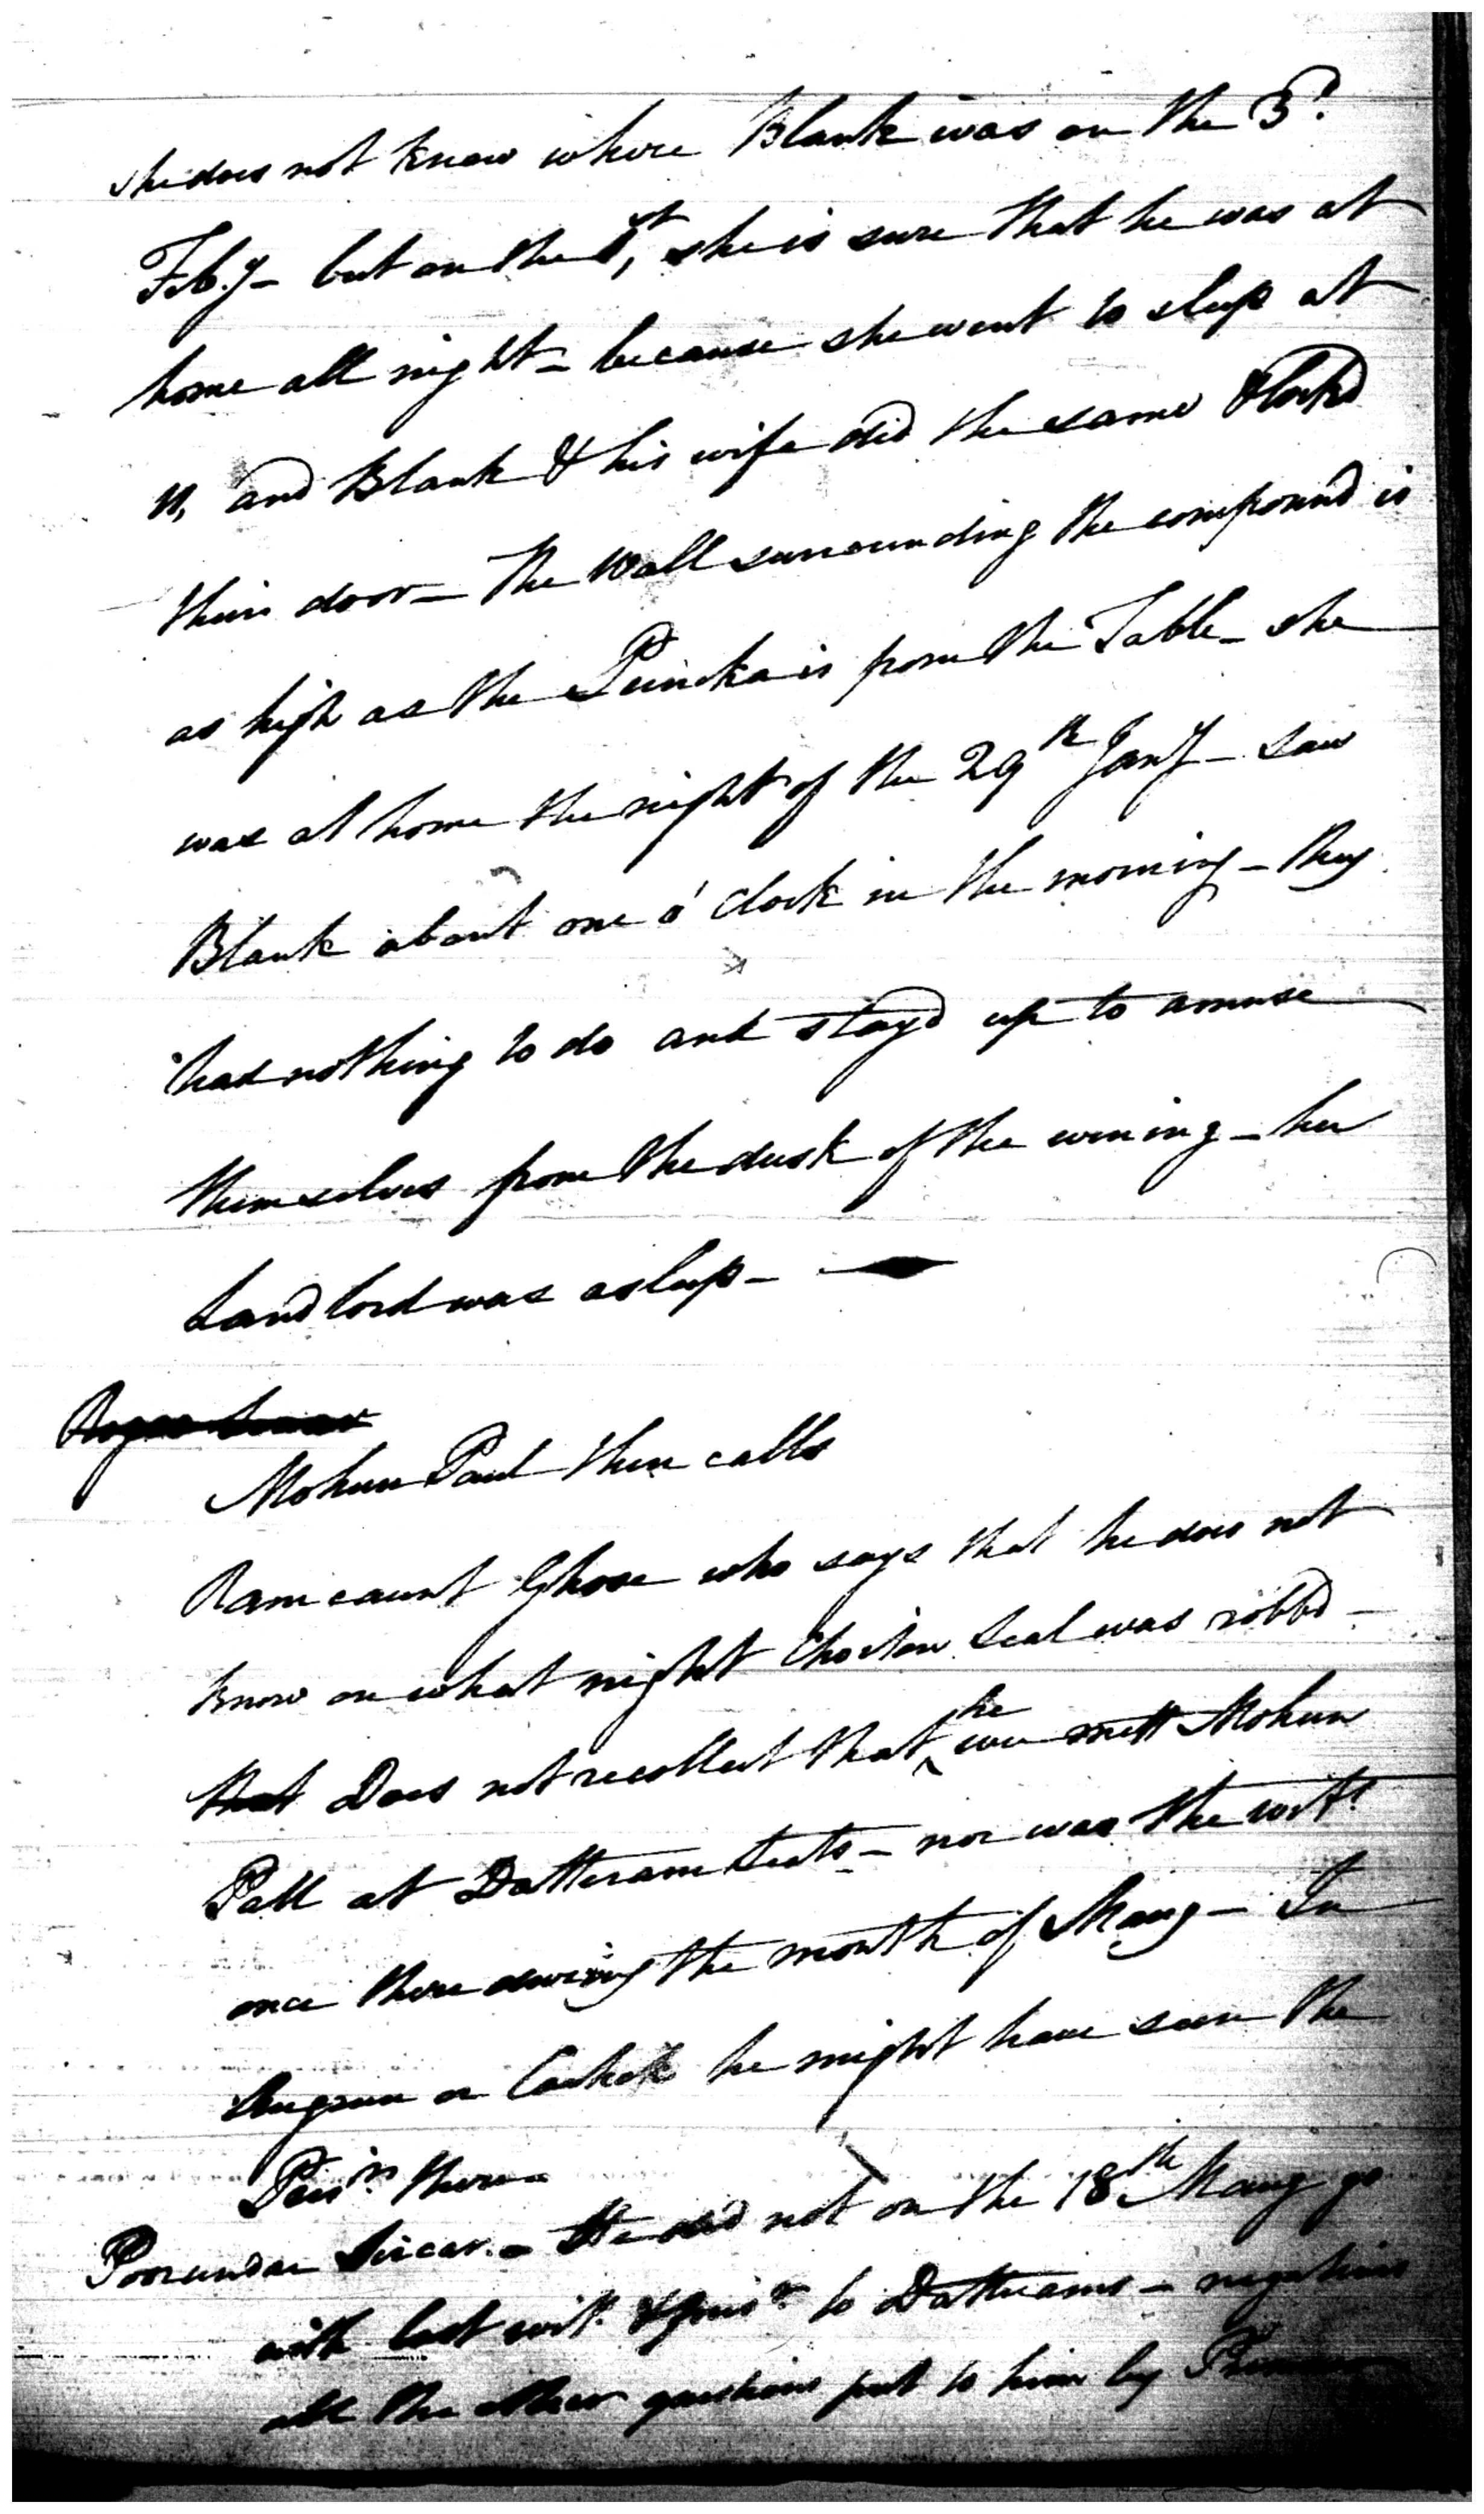 she does not know where Blank was on the 3d
Feb.y - but on the 1st, she is sure that he was at
home all night - because she went to sleep at
11, and Blank & his wife did the same & lockd
their door - The Wall surrounding the compound is
as high as the Puncka is from the Table - she
was at home the night of the 29th Jany - saw
Blank about one o'Clock in the morning - they
had nothing to do and stayd up to amuse
themselves from the dusk of the evening - her
Landlord was asleep -
Mohun Paul then calls
Ramcaunt Ghose who says that he does not
know on what night Seal was robbd -
that Does not recollect that he ever mett Mohun
Pall at Datteram - nor was the witt.
once there during the month of Maug - In
Augrun or Cartick he might have seen the
Pris.r there -
Poorundar Sircar - He did not on the 18th Maug go
with last wit. & pris.r to Datterams - negatives
all the other questions put to him by Prisoner